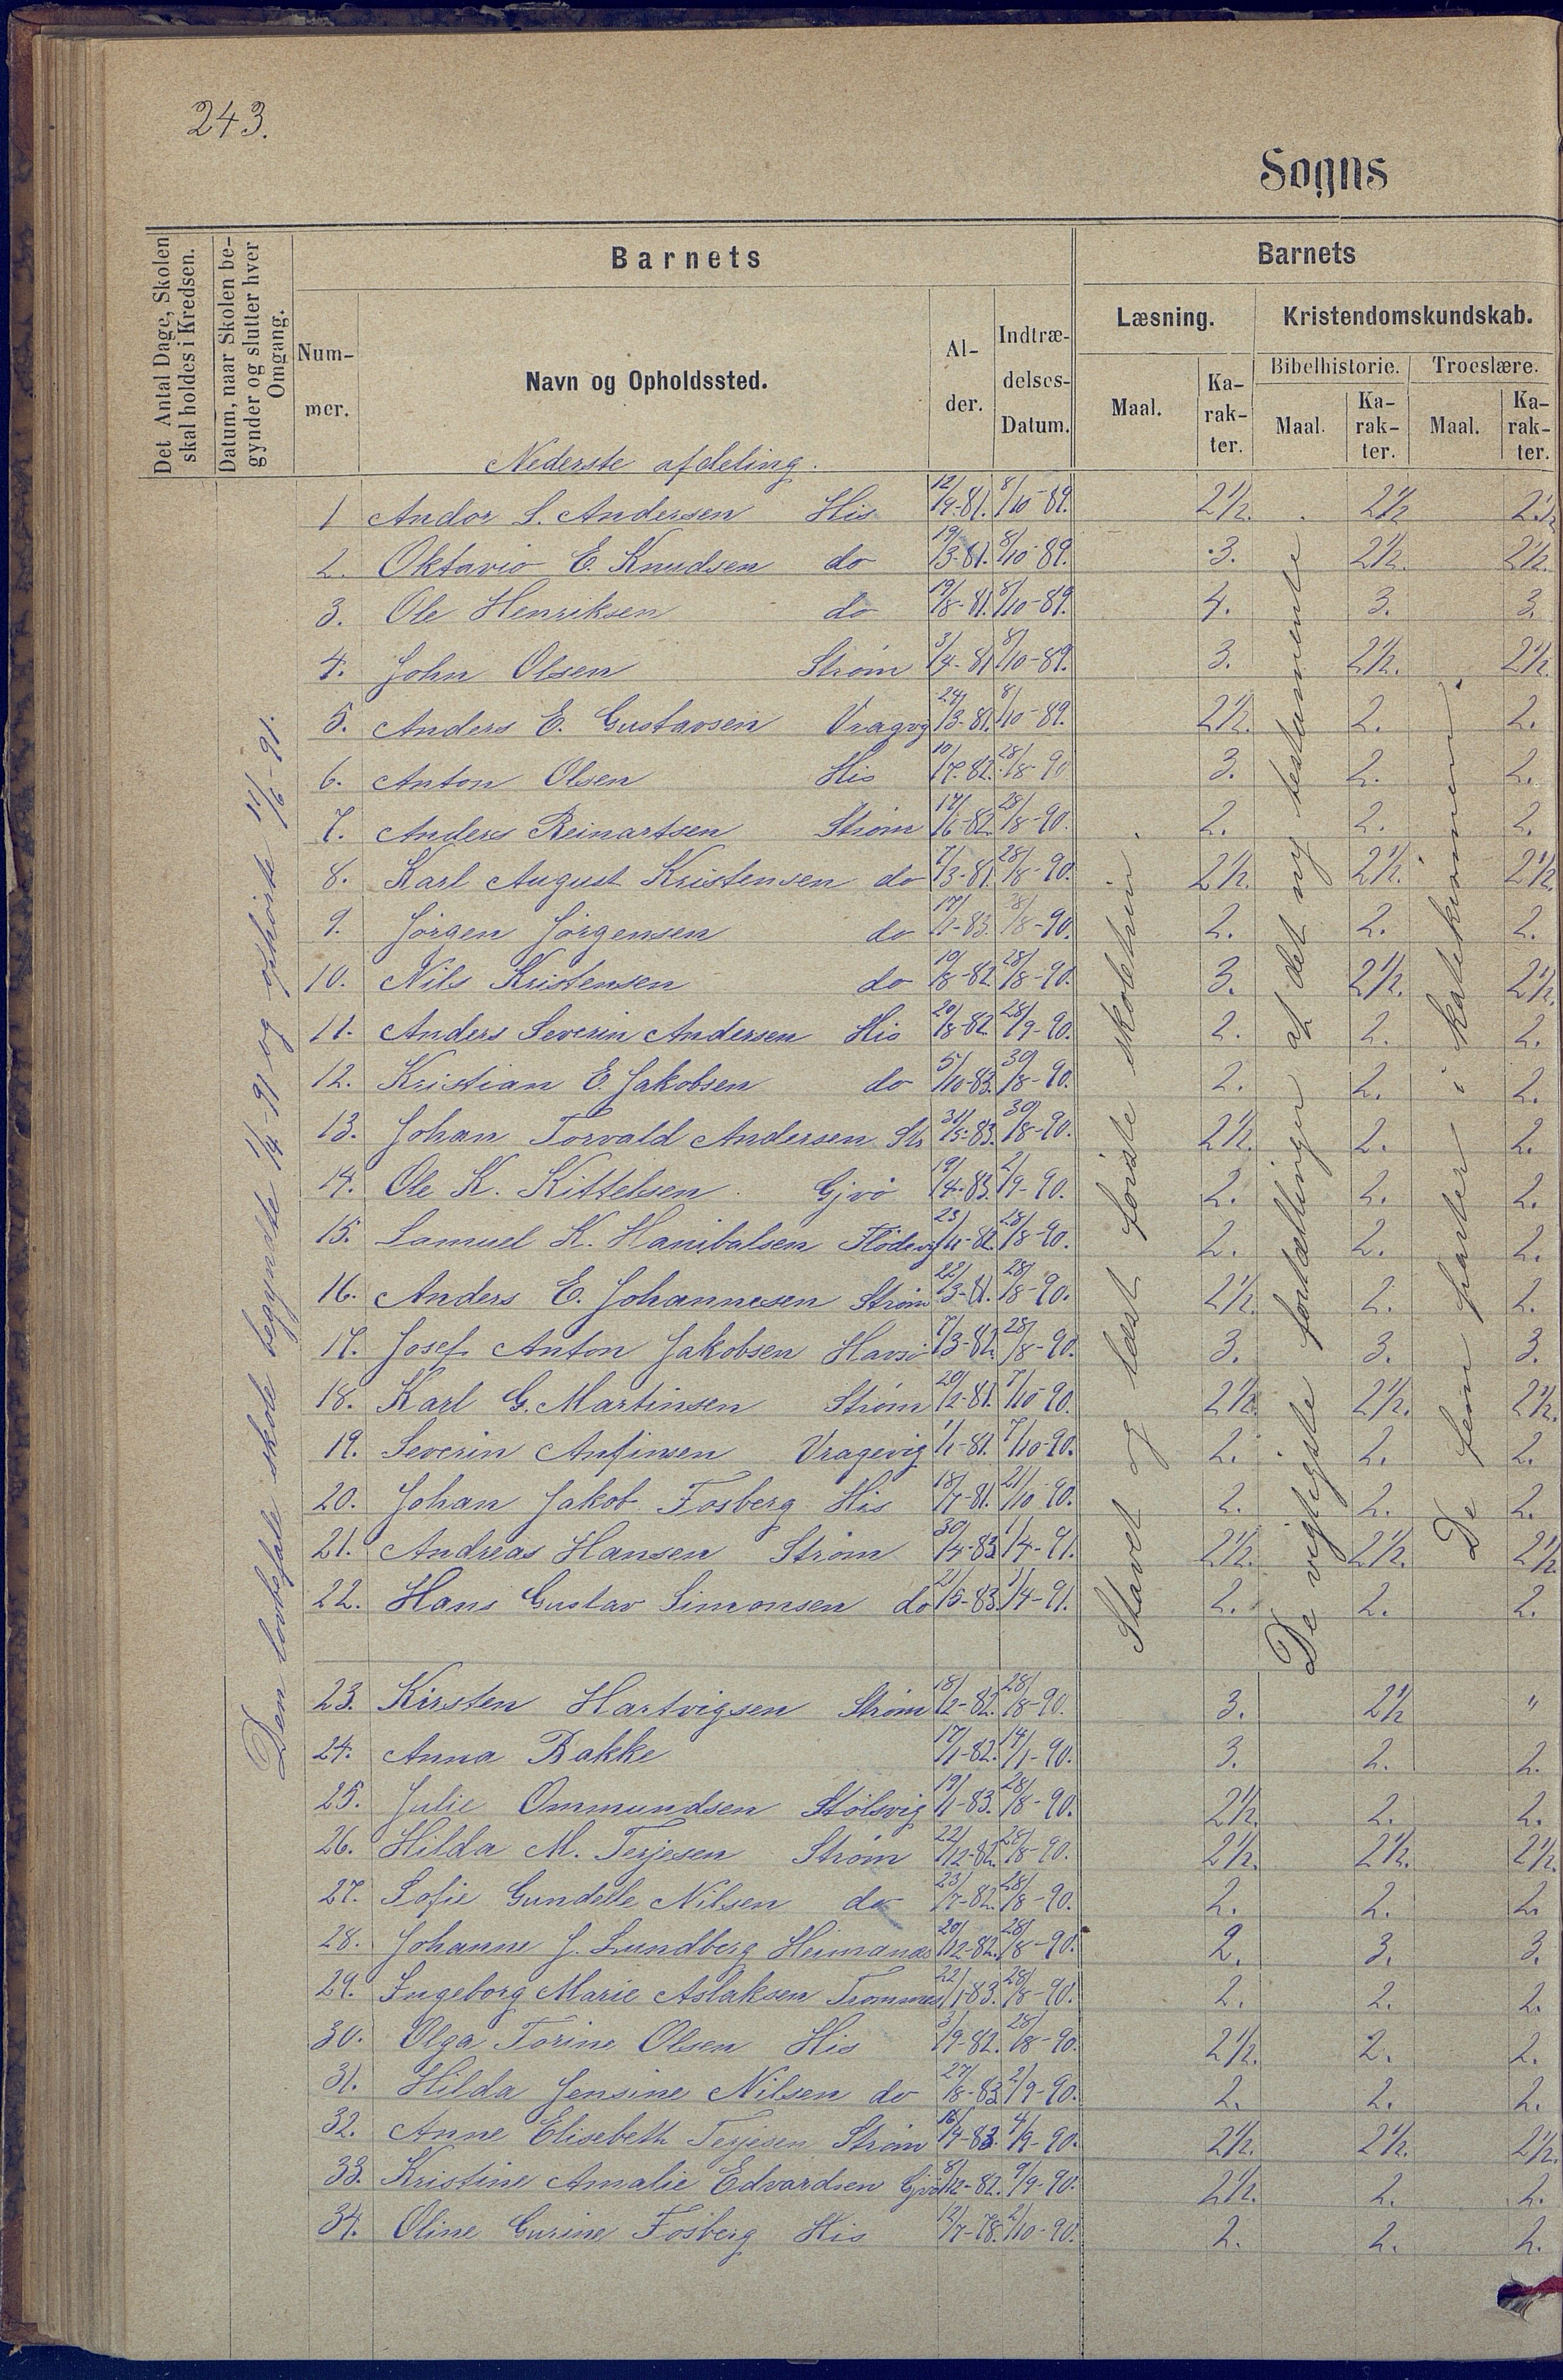 243.
Sogns
Det Antal Dage, Skolen
skal holdes i Kredsen.
Datum, naar Skolen be-
gynder og slutter hver
Omgang.
Barnets
Num-
mer.
Navn og Opholdssted.
Al-
der.
Indtræ-
delses-
Datum.
Barnets
Læsning.
Kristendomskundskab.
Maal.
Ka-
rak-
ter.
Bibelhistorie.
Troeslære.
Maal.
Ka-
rak-
ter.
Maal.
Ka-
rak-
ter.
Nederste afdeling.
Den lovbefalte skole begyndte 1/4-91 og ophørte 11/6-91.
Stavet og læst første skoletrin.
De vigtigste fortællinger af det ny testamente
De fem parter i katekismen.
1 Andor S. Andersen His 12/9-81. 8/10-89. 2 1/2. 2 1/2 2 1/2
2. Oktavio E. Knudsen do 19/3-81. 8/10-89. 3. 2 1/2. 2 1/2.
3. Ole Henriksen do 19/8-81. 8/10-89. 4. 3. 3.
4. John Olsen Strøm 3/4-81 8/10-89. 3. 2 1/2. 2 1/2.
5. Anders E. Gustavsen Vragvg 24/3-81. 8/10-89. 2 1/2. 2. 2.
6. Anton Olsen His 10/7-82. 28/8-90 3. 2. 2.
7. Anders Reinartsen Strøm 17/6-82. 28/8-90. 2. 2. 2.
8. Karl August Kristensen do 7/3-81. 28/8-90. 2 1/2. 2 1/2. 2 1/2.
9. Jørgen Jørgensen do 17/1-83. 28/8-90. 2. 2. 2.
10. Nils Kristensen do 19/8-82. 28/8-90. 3. 2 1/2. 2 1/2.
11. Anders Severin Andersen His 20/8-82. 28/9-90. 2. 2. 2.
12. Kristian E. Jakobsen do 5/10-83. 30/8-90. 2. 2. 2.
13. Johan Torvald Andersen Str 31/5-83. 30/8-90. 2 1/2. 2. 2.
14. Ole K. Kittelsen Gjvø 19/4-83. 2/9-90. 2. 2. 2.
15. Samuel K. Hanibalsen Flødevg 23/11-82. 28/8-90. 2. 2. 2.
16. Anders E. Johannesen Strøm 22/3-81. 28/8-90. 2 1/2. 2. 2.
17. Josef Anton Jakobsen Havsø 7/3-82. 28/8-90. 3. 3. 3.
18. Karl G. Martinsen Strøm 20/2-81. 7/10-90. 2 1/2. 2 1/2. 2 1/2.
19. Severin Anfinsen Vragevig 1/1-81. 7/10-90. 2. 2. 2.
20. Johan Jakob Fosberg His 18/7-81. 21/10-90. 2. 2. 2.
21. Andreas Hansen Strøm 30/4-83 1/4-91. 2 1/2. 2 1/2. 2 1/2.
22. Hans Gustav Simonsen do 2/5-83. 1/4-91. 2. 2. 2.
23. Kirsten Hartvigsen Strøm 18/2-82. 28/8-90. 3. 2 1/2 "
24. Anna Bakke 17/1-82. 14/1-90. 3. 2. 2.
25. Julie Ommundsen Stølsvig 19/1-83. 28/8-90. 2 1/2. 2. 2.
26. Hilda M. Terjesen Strøm 22/12-82. 28/8-90. 2 1/2. 2 1/2. 2 1/2.
27. Sofie Gundelle Nilsen do 23/7-82. 28/8-90. 2. 2. 2.
28. Johanne J. Lundberg 20/12-82. 28/8-90. 2. 3. 3.
29. Ingeborg Marie Aslaksen 22/1-83. 28/8-90. 2. 2. 2.
30. Olga Torine Olsen His 3/9-82. 28/8-90. 2 1/2. 2. 2.
31. Hilda Jensine Nilsen do 27/8-83 2/9-90. 2. 2. 2.
32. Anne Elisebeth Terjesen Strøm 16/4-83. 4/9-90. 2 1/2. 2 1/2. 2 1/2.
33. Kristine Amalie Edvardsen Gjvø 8/12-82. 9/9-90. 2 1/2. 2. 2.
34. Oline Gurine Fosberg His 12/7-78. 2/10-90. 2. 2. 2.